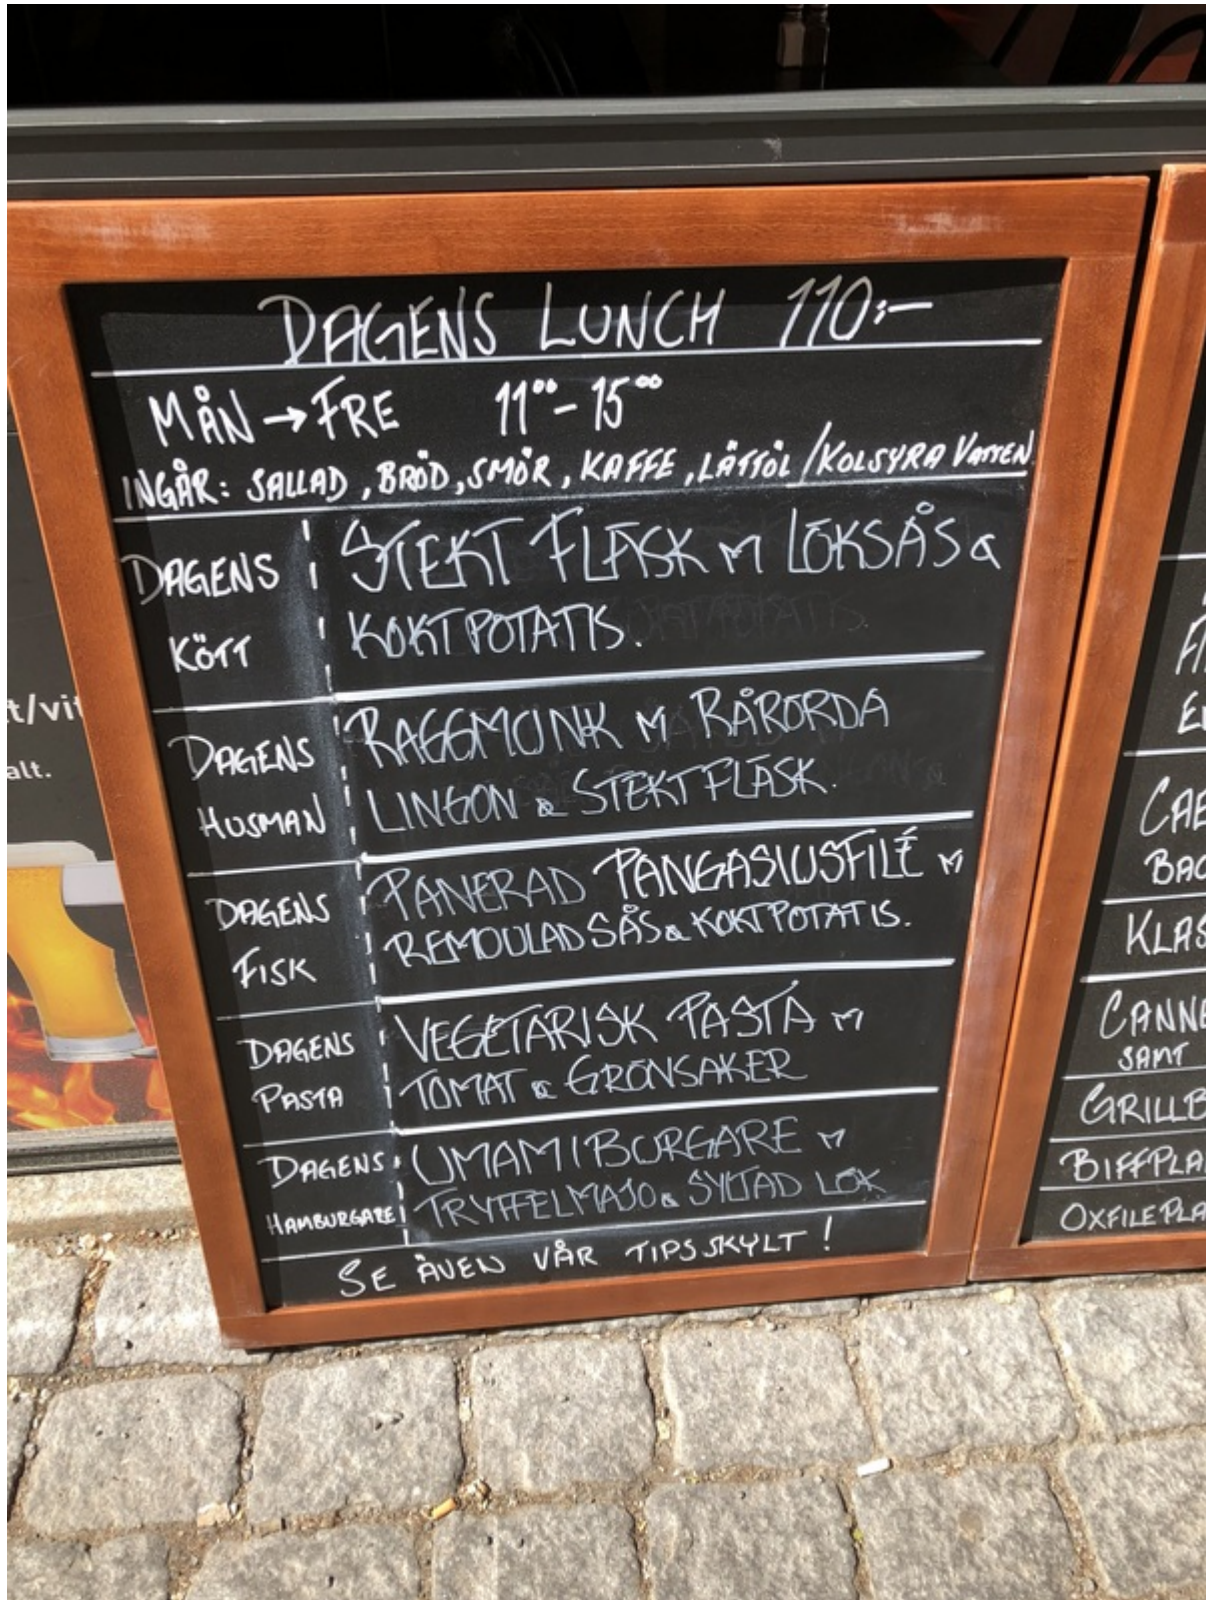 DAGENS LUNCH 110:-
MÅN → FRE 11⁰⁰ - 15⁰⁰
INGÅR: SALLAD, BRÖD, SMÖR, KAFFE, LÄTTÖL / KOLSYRA VATTEN
DAGENS KÖTT
STEKT FLÄSK M LÖKSÅS &
KOKTPOTATIS.
DAGENS HUSMAN
RAGGMUNK M RÅRÖRDA
LINGON & STEKT FLÄSK.
DAGENS FISK
PANERAD PANGASIUSFILÉ M
REMOULADSÅS & KOKTPOTATIS.
DAGENS PASTA
VEGETARISK PASTA M
TOMAT & GRÖNSAKER
DAGENS HAMBURGARE
UMAMIBURGARE M
TRYFFELMAJO & SYLTAD LÖK
SE ÄVEN VÅR TIPSSKYLT!
t/vit
alt.
BIFFPLA
OXFILEPLA
KLAS
CANNE
SAMT
GRILLB